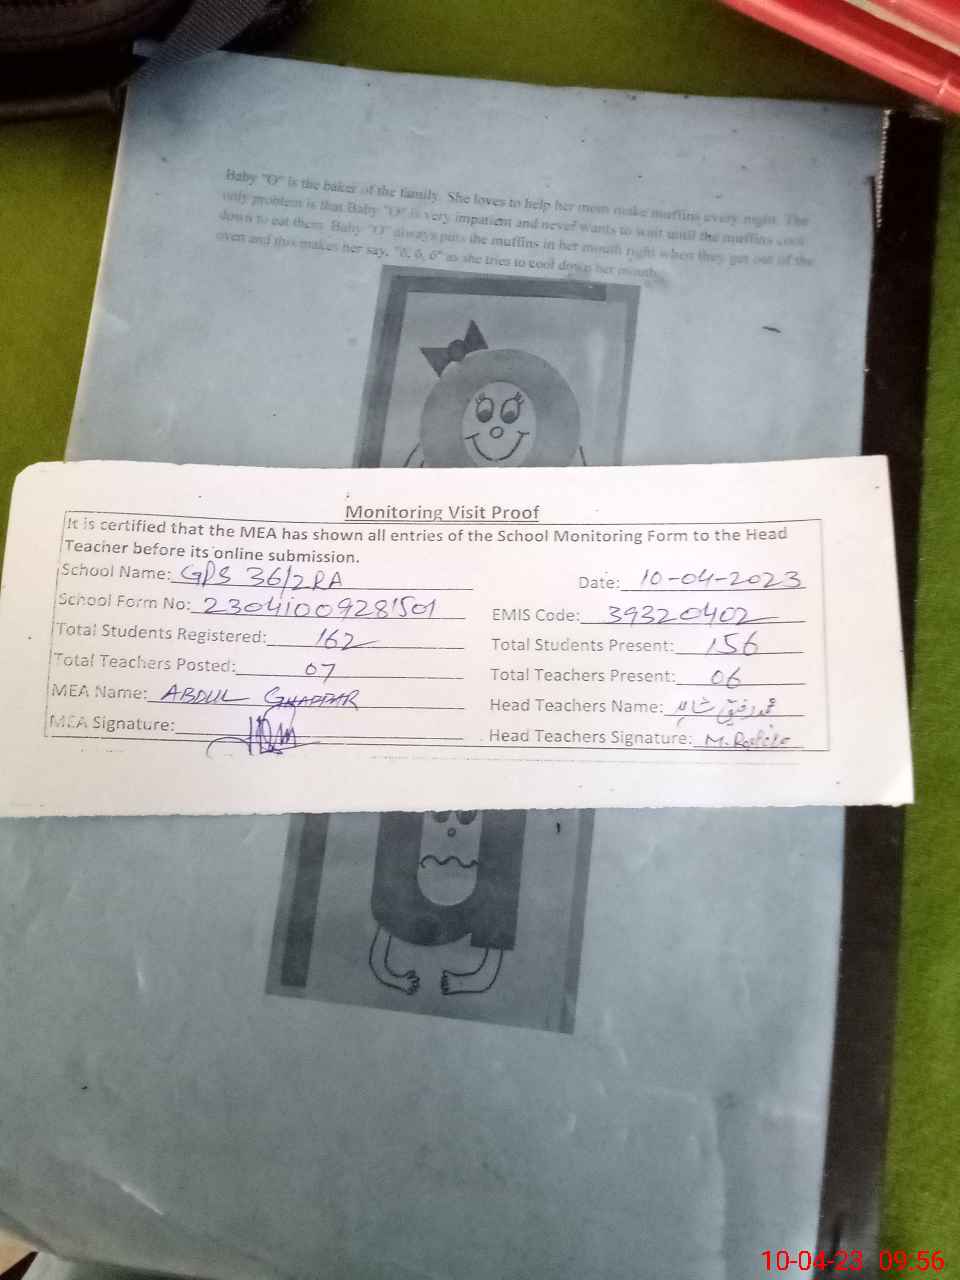 Baby "O" is the baker of the family. She loves to help her mom make muffins every night. The
only problem is that Baby "O" is very impatient and never wants to wait until the muffins cool
down to eat them. Baby "O" always puts the muffins in her mouth right when they get out of the
oven and this makes her say, "ó, ó, ó" as she tries to cool down her mouth.
Monitoring Visit Proof
It is certified that the MEA has shown all entries of the School Monitoring Form to the Head
Teacher before its online submission.
School Name: GPS 36/2RA Date: 10-04-2023
School Form No: 23041009281501 EMIS Code: 39320402
Total Students Registered: 162 Total Students Present: 156
Total Teachers Posted: 07 Total Teachers Present: 06
MEA Name: ABDUL GHAFFAR Head Teachers Name: محمد رفیق شاہد
MEA Signature: Head Teachers Signature: M. Rafiq
10-04-23 09:56